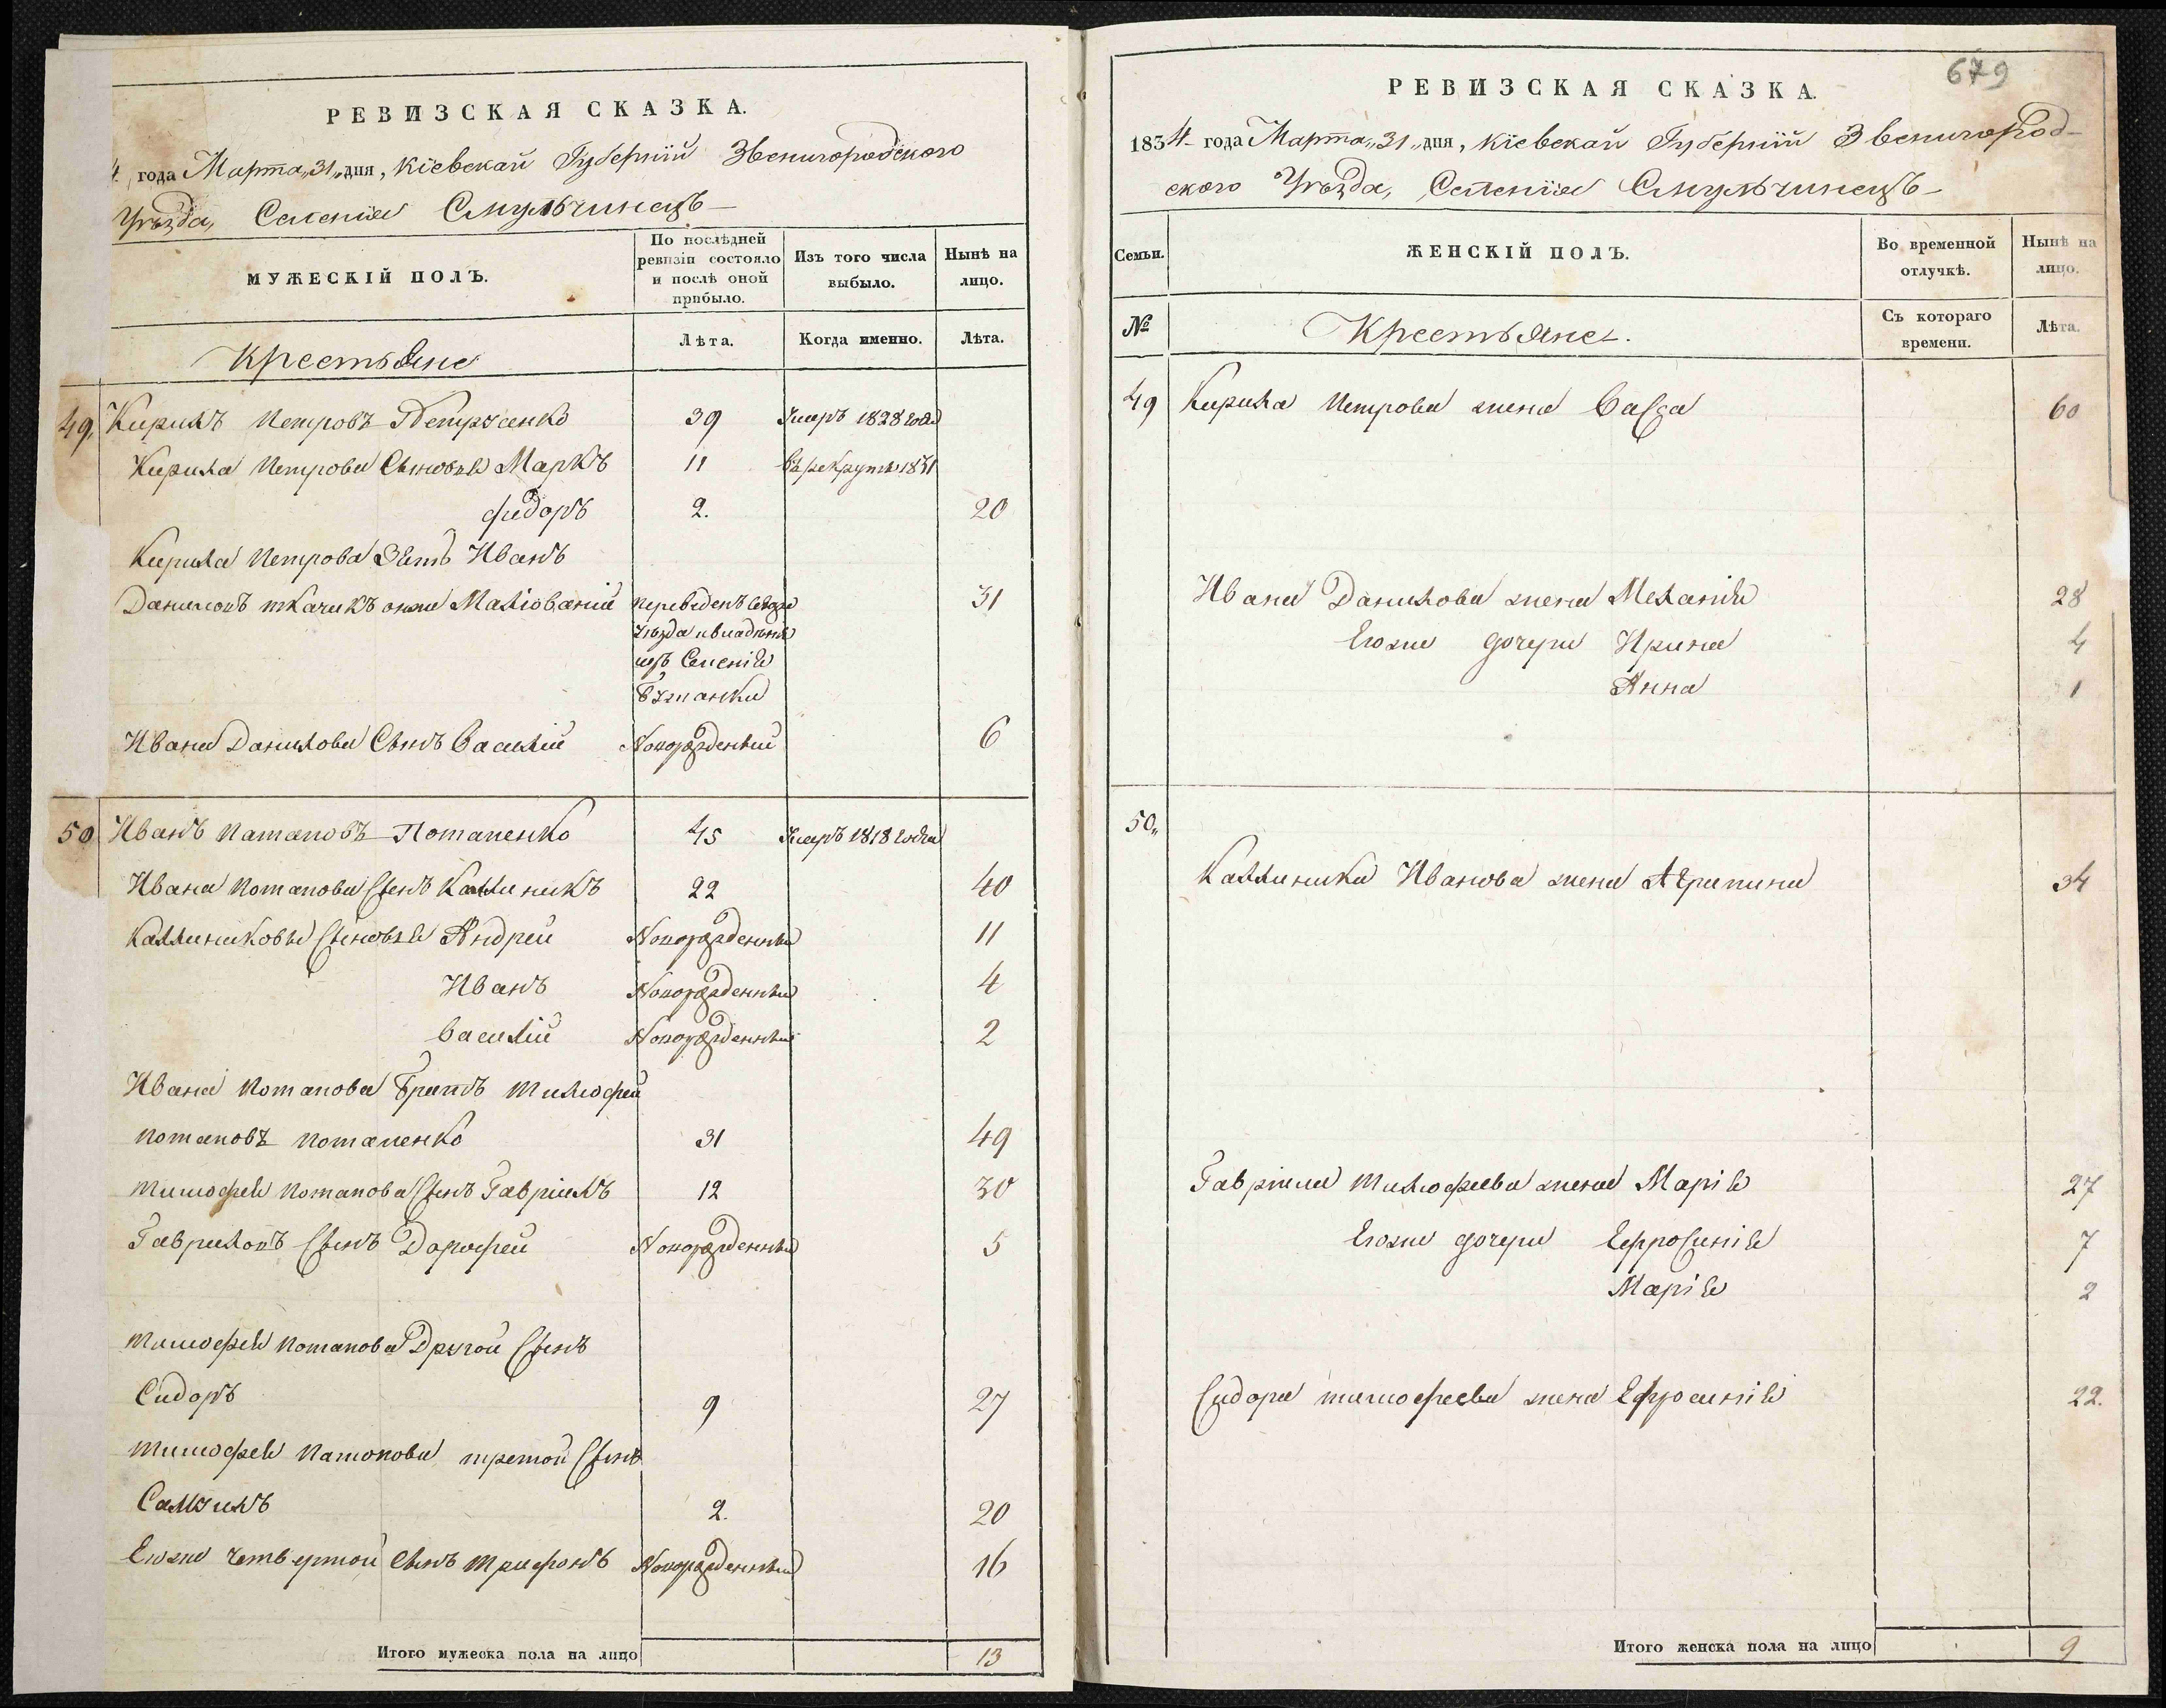 РЕВИЗСКАЯ СКАЗКА.
4 года Марта „31„ дня, Кіевской Губерніи Звенигородского
Уѣзда, Селенія Смульчинецъ
МУЖЕСКІЙ ПОЛЪ.
По послѣдней ревизіи состояло и послѣ оной прибыло.
Изъ того числа выбыло.
Нынѣ на лицо.
Лѣта.
Когда именно.
Лѣта.
Крестьяне
49. Кирилъ Петровъ Петрусенко 39 Умеръ 1828 года
Кирила Петрова Сыновья Маркъ 11 въ рекруты 1831
Фидоръ 2. 20
Кирила Петрова Зять Иванъ
Даниловъ ткачикъ онже Малюваній переведенъ 31
уѣзда
изъ Селенія
Ивана Данилова Сынъ Василій Новорожденный 6
50 Иванъ Патаповъ Потапенко 45 Умеръ 1818 года
Ивана Потапова Сынъ Калиникъ 22 40
Калиниковы Сыновья Андрей Новорожденный 11
Иванъ Новорожденный 4
Василій Новорожденный 2
Ивана Потапова Братъ Тимофей
Потаповъ Потапенко 31 49
Тимофея Потапова Сынъ Гавріилъ 12 30
Гавриловъ Сынъ Дорофей Новорожденный 5
Тимофея Потапова Другой Сынъ
Сидоръ 9 27
Тимофея Патопова третой Сынъ
Самуилъ 2. 20
Егоже Четвертой Сынъ Трифонъ Новорожденный 16
Итого мужеска пола на лицо 13
679
РЕВИЗСКАЯ СКАЗКА.
1834 года Марта „31„ дня, Кіевской Губерніи Звенигород-
ского Уѣзда, Селенія Смульчинецъ
Семьи.
ЖЕНСКІЙ ПОЛЪ.
Во временной отлучкѣ.
Нынѣ на лицо.
№
Крестьяне.
Съ котораго времени.
Лѣта.
49 Кирила Петрова жена Васса 60
Ивана Данилова жена Меланія 28
Егоже дочери Ирина 4
Анна 1
50„
Калиника Иванова жена Агрипина 34
Гавріила Тимофеева жена Марія 27
Егоже дочери Ефросинія 7
Марія 2
Сидора Тимофеева жена Ефросинія 22.
Итого женска пола на лицо 9